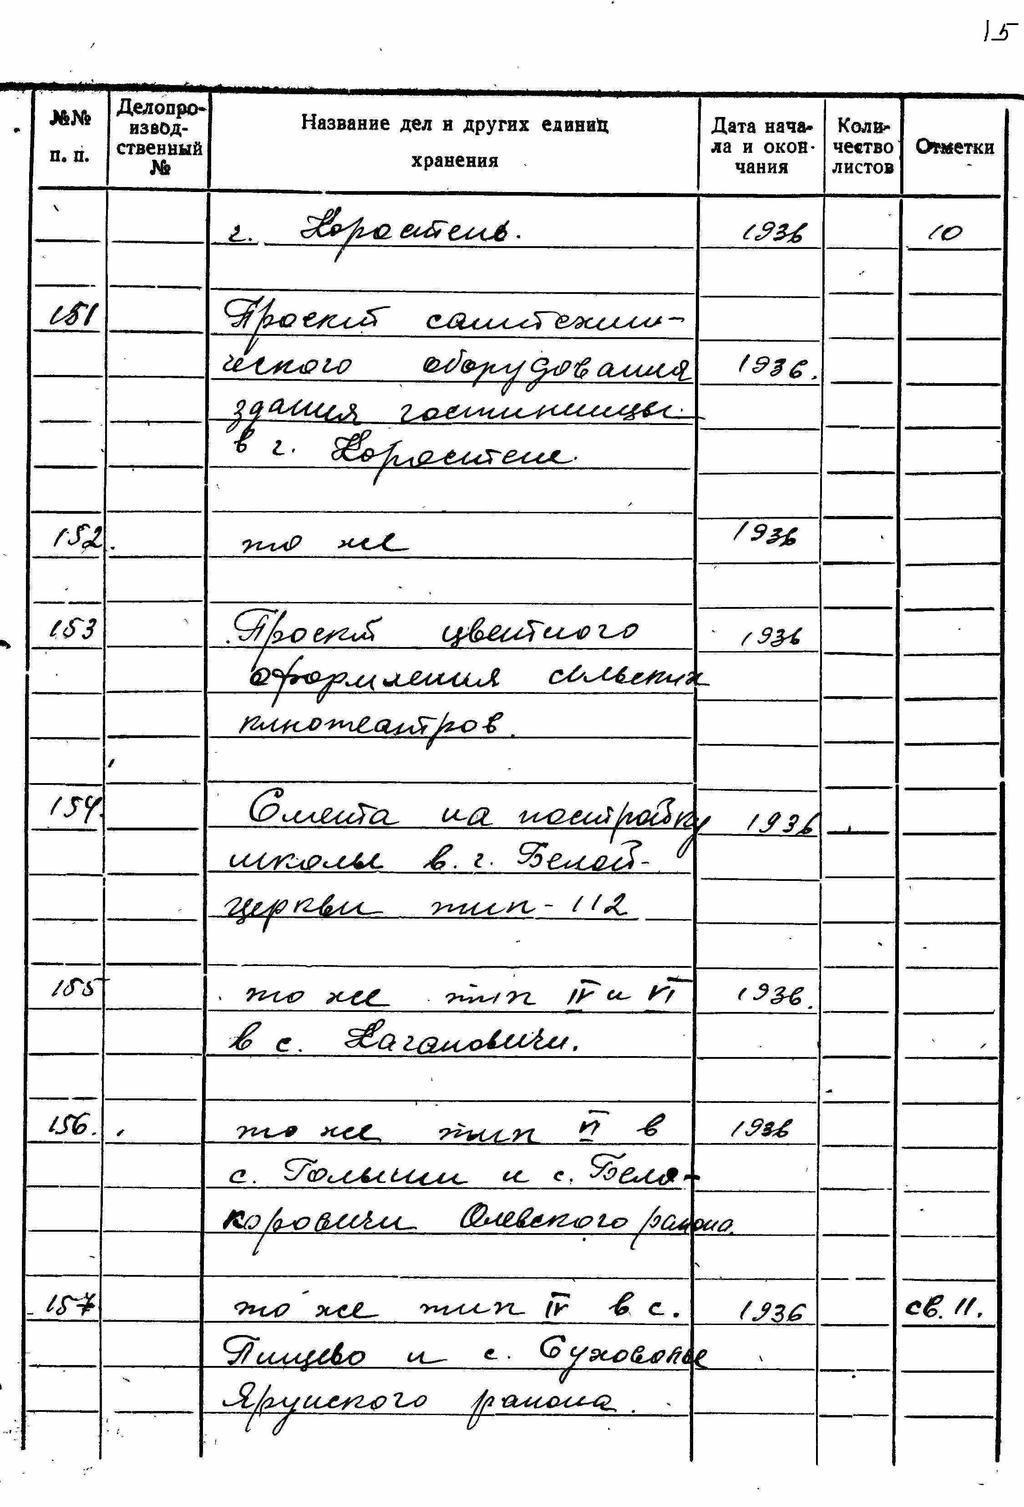 15
№№ п. п.
Делопроизводственный №
Название дел и других единиц хранения
Дата начала и окончания
Количество листов
Отметки
г. Коростень. 1936 10
151 Проект сантехни-
ческого оборудования 1936.
здания гостиницы
в г. Коростене.
152. то же 1936
153 Проект цветного 1936
оформления сельских
кинотеатров.
154. Смета на постройку 1936
школы в г. Белой-
церкви тип - 112
155 то же тип IV и VI 1936.
в с. Кагановичи.
156. то же тип VI в 1936
с. Голыши и с. Бело-
коровичи Олевского района.
157 то же тип IV в с. 1936 св. 11.
Пищево и с. Суховолье
Ярунского района.